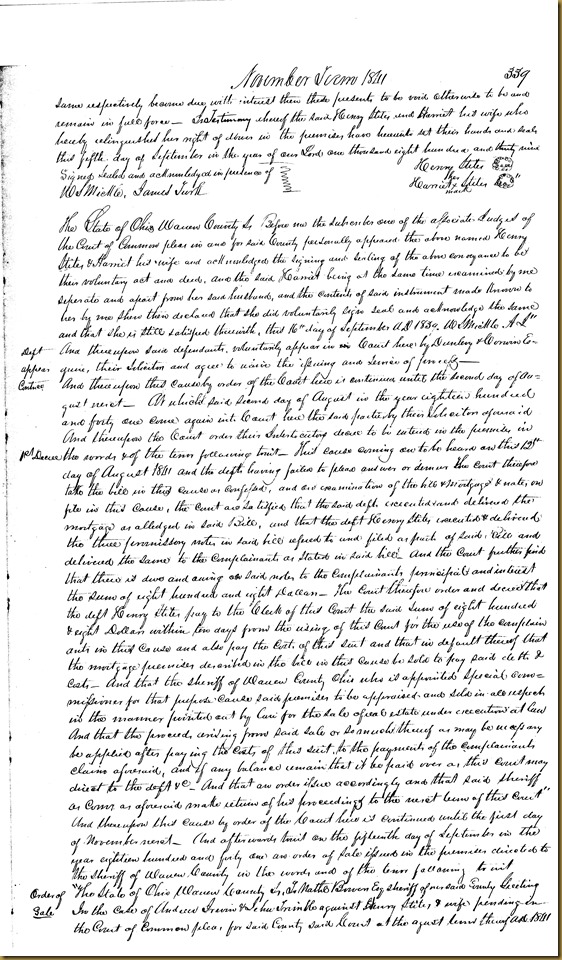 November Term 1841
339
same respectively become due with interest then these presents to be void otherwise to be and
remain in full force – In Testimony whereof the said Henry Stiles and Harriet his wife who
hereby relinquished her right of dower in the premises have hereunto set their hands and seals
this fifth day of September in the year of our Lord one thousand eight hundred and thirty nine
Signed sealed and acknowledged in presence of
Henry Stiles Seal
W S Mickle, James Turk
Harriet her x mark Stiles Seal
The State of Ohio Warren County Ss Before me the subscriber one of the associate Judges of
the Court of Common pleas in and for said County personally appeared the above named Henry
Stiles & Harriet his wife and acknowledged the signing and sealing of the above conveyance to be
their voluntary act and deed, and the said Harriet being at the same time examined by me
seperate and apart from her said husband, and the contents of said instrument made known to
her by me she then declared that she did voluntarily sign seal and acknowledge the same
and that she is still satisfied therewith, this 16th day of September AD 1839. W S Mickle A. J."
Deft appear
Continu
And thereupon said defendants, voluntarily appear in Court here by Dunlevy & Corwin Es-
quires, their Solicitors and agree to waive the issuing and service of process –
And thereupon this cause by order of the Court here is continued until the second day of Au-
gust next – At which said second day of August in the year eighteen hundred
and forty one come again into Court here the said parties by their Solicitors aforesaid
And thereupon the Court order their Interlocutory decree to be entered in the premises in
1st Decree
the words & of the tenor following towit – This cause coming on to be heard on this 12th
day of August 1841 and the defts having failed to plead answer or demur the Court therefore
take the bill in this cause as confessed, and on examination of the bill & mortgage & notes, on
file in this cause, the Court are satisfied that the said defts executed and delivered the
mortgage as alledged in said Bill, and that the deft Henry Stiles executed & delivered
the three promissory notes in said bill refered to and filed as part of said Bill and
delivered the same to the Complainants as stated in said bill And the Court further find
that there is due and owing on said notes to the Complainants principal and interest
the sum of eight hundred and eight Dollars – The Court therefore order and decree that
the deft Henry Stiles pay to the Clerk of this Court the said sum of eight hundred
& eight Dollars within ten days from the rising of this Court for the use of the complain
ants in this Cause and also pay the Costs of this suit and that in default thereof that
the mortgage premises described in the bill in this cause be sold to pay said debt &
costs – And that the sheriff of Warren County Ohio who is appointed special com-
missioner for that purpose cause said premises to be appraised and sold in all respects
in the manner pointed out by law for the sale of real estate under execution at law
And that the proceeds arising from said sale or so much thereof as may be necessary
be applied after paying the costs of this suit, to the payment of the complainants
claims aforesaid, and if any balance remain that it be paid over as this Court may
direct to the deft &c – And that an order issue accordingly and that said Sheriff
as Comr as aforesaid make return of his proceedings to the next term of this Court"
And thereupon this cause by order of the Court here is continued until the first day
of November next – And afterwards towit on the fifteenth day of September in the
year eighteen hundred and forty one an order of sale issued in the premises directed to
the Sheriff of Warren County in the words and of the tenor following to wit
Order of Sale
"The State of Ohio Warren County Ss, To Nathl Bowen Esq sheriff of our said County Greeting
In the Case of Andrew Irwin & John Trimble against Henry Stiles & wife pending in
the Court of Common pleas for said County said Court at the august term thereof AD 1841